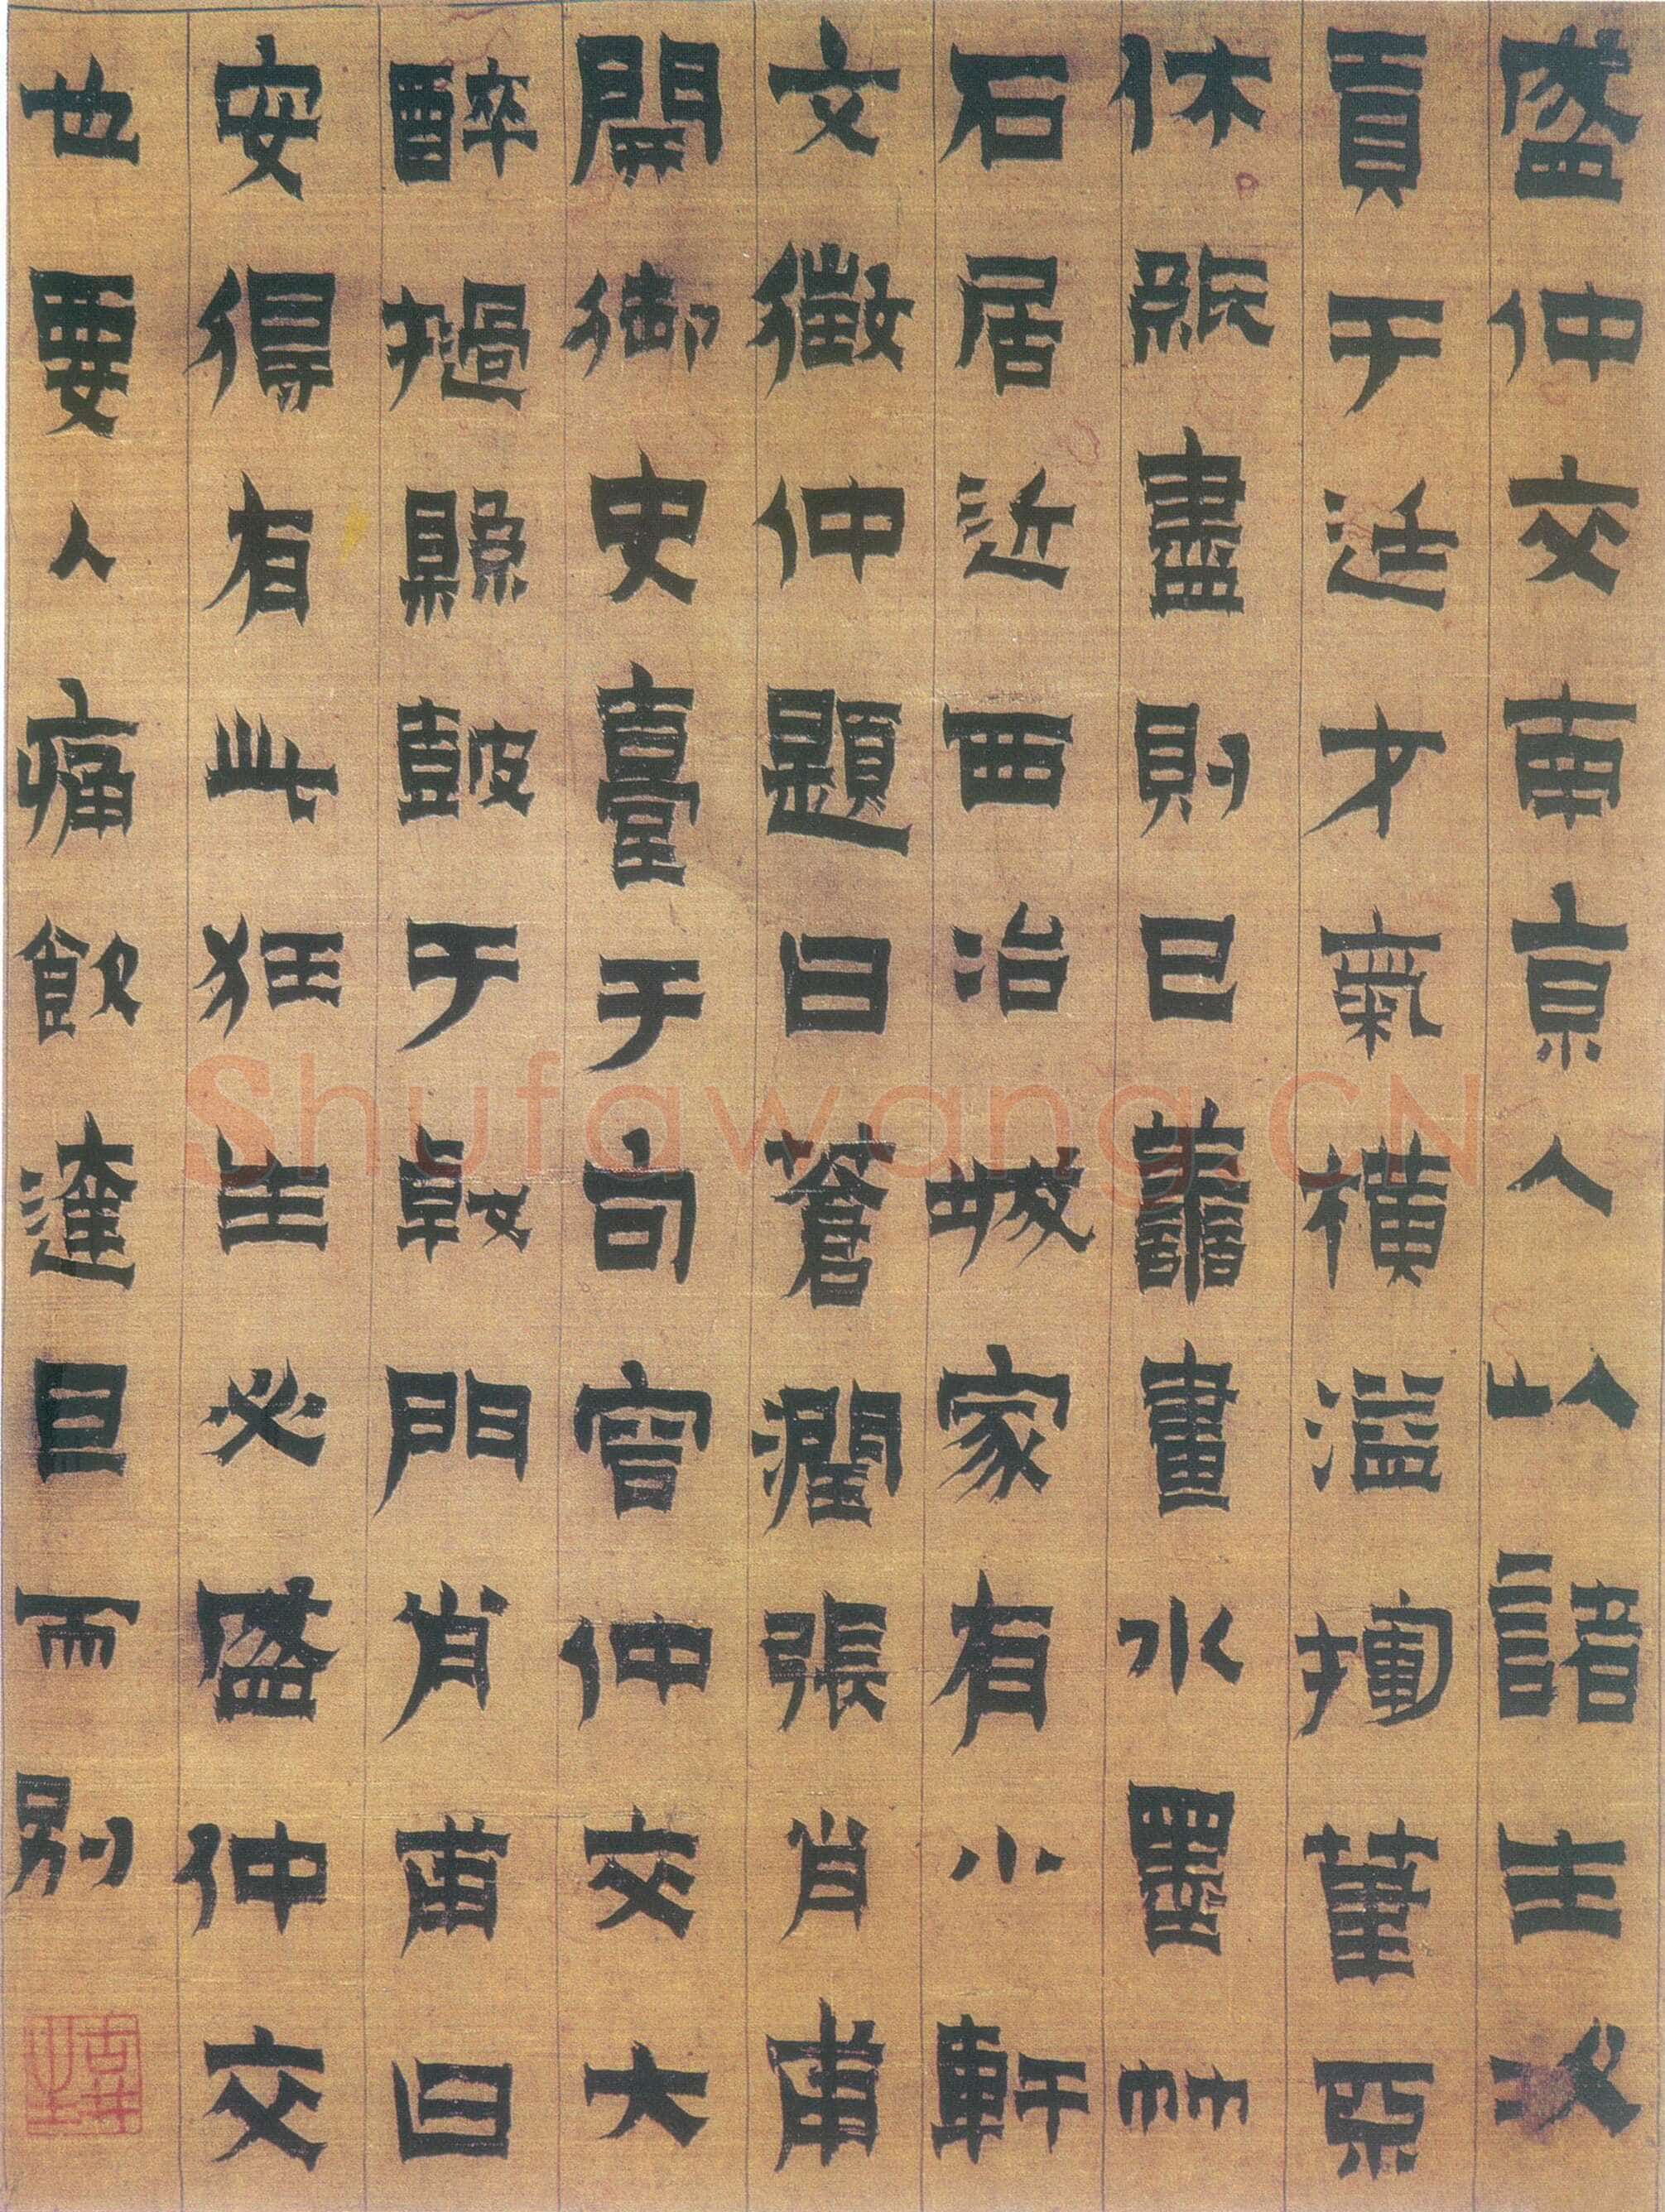 盛仲交南京人以諸生次
貢于廷才氣橫溢揮筆不
休紙盡則已善畫水墨竹
石居近西冶城家有小軒
文徵仲題曰蒼潤張肖甫
開御史臺于句容仲交大
醉撾縣鼓于戟門肖甫曰
安得有此狂生必盛仲交
也要人痛飲達旦而別
Shufawang.CN